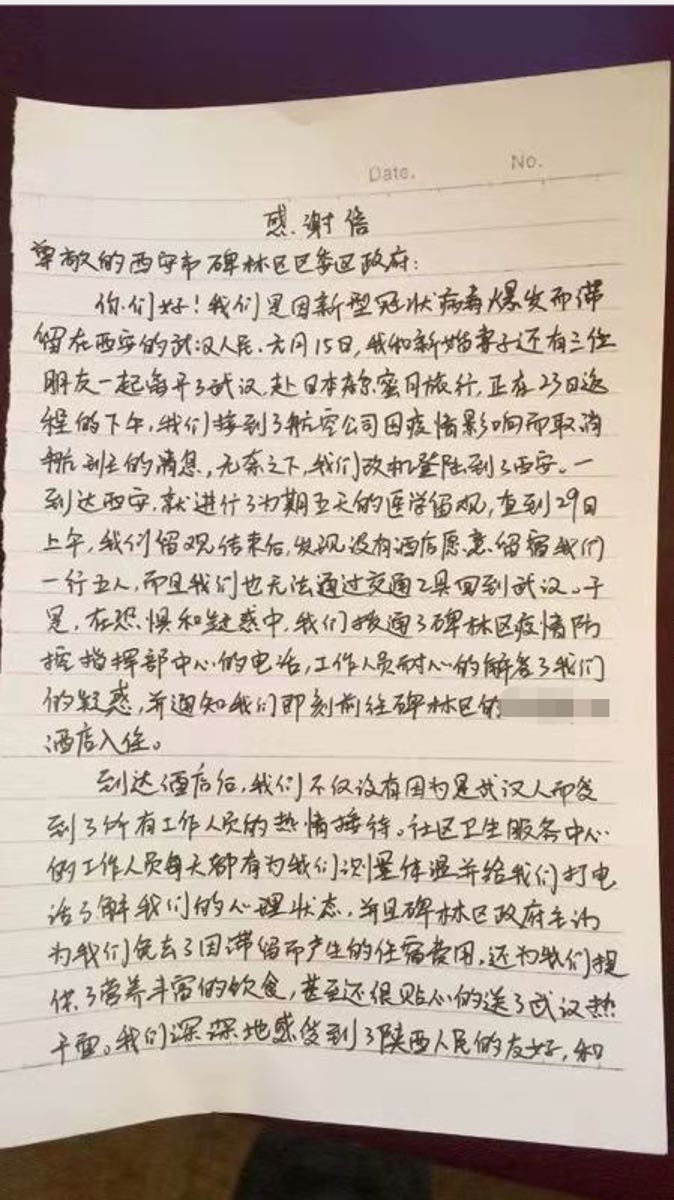 Date.
No.
感谢信
尊敬的西安市碑林区区委区政府:
你们好!我们是因新型冠状病毒爆发而滞
留在西安的武汉人民、元月15日,我和新婚妻子还有三位
朋友一起离开了武汉,赴日本度蜜月旅行,正在23日返
程的下午,我们接到了航空公司因疫情影响而取消
航班的消息,无奈之下,我们改机登陆到了西安。一
到达西安,就进行了为期五天的医学留观,直到29日
上午,我们留观结束后,发现没有酒店愿意留宿我们
一行五人,而且我们也无法通过交通工具回到武汉。于
是,在恐惧和疑惑中,我们拨通了碑林区疫情防
控指挥部中心的电话,工作人员耐心的解答了我们
的疑惑,并通知我们即刻前往碑林区的
酒店入住。
到达酒店后,我们不仅没有因为是武汉人而受
到了所有工作人员的热情接待。社区卫生服务中心
的工作人员每天都有为我们测量体温并给我们打电
话了解我们的心理状态,并且碑林区政府主动
为我们免去了因滞留而产生的住宿费用,还为我们提
供了营养丰富的饮食,甚至还很贴心的送了武汉热
干面。我们深深地感受到了陕西人民的友好,和